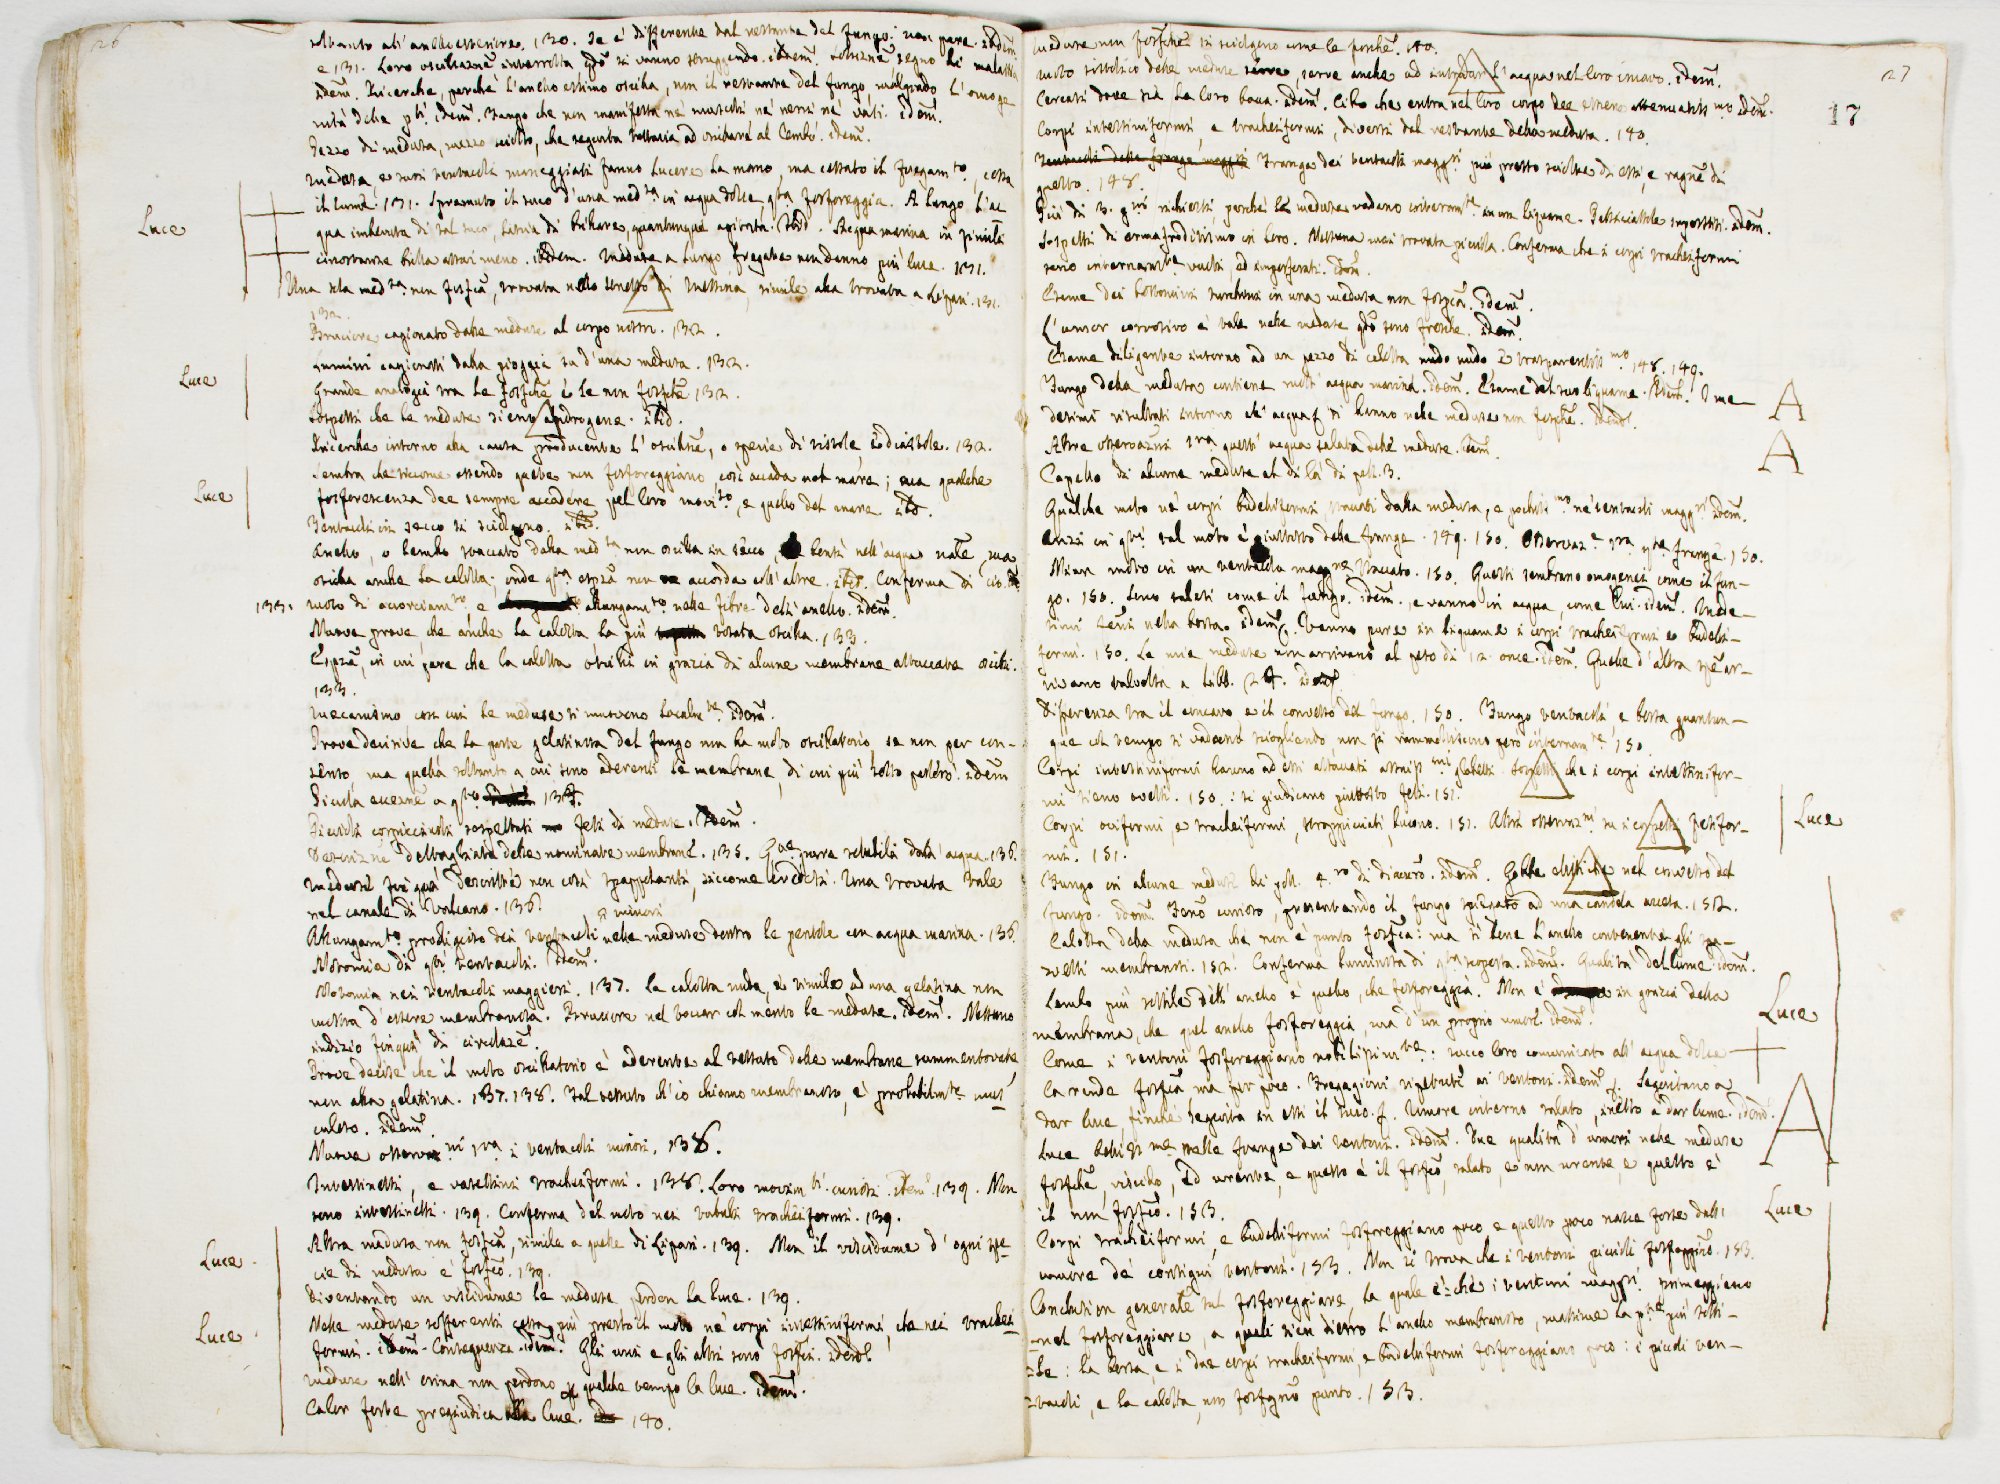 26
soltanto all'anello esteriore. 130. Se è differente dal restante del fungo: non pare. idem
e 131. Loro oscillazne interrotta qdo si vanno struggendo. idem. segno di malattia
idem. Ricerche, perchè l'anello estimo oscilla, non il restante del fungo, malgrado l'omoge
nità delle pti. idem. Fungo che non manifesta nè muscoli, nè nervi nè vasi. idem.
Pezzo di medusa, mezzo sciolto, che seguita tuttavia ad oscillare al lembo. idem.
Medusa, e suoi tentacoli maneggiati fanno lucere la mano, ma cessato il fregamto, cessa
il lume. 131. Spremuto il suco d'una medsa in acqua dolce, qta fosforeggia. A lungo l'ac
qua imbevuta di tal suco, lascia di brillare, quantunque agitata. Ibid. Acqua marina in simili
circostanze brilla assai meno. idem. Meduse a lungo fregate non danno più luce. 131.
Luce
Una sola medsa non fosfca, trovata nello stretto di Messina, simile alla trovata a Lipari. 131.
132.
Bruciore cagionato dalle meduse al corpo nostro. 132.
Lumini cagionati dalla pioggia su d'una medusa. 132.
Luce
Grande analogia tra le fosfche e le non fosfche 132.
Sospetti che le meduse sieno androgene. ibid.
Ricerche intorno alla causa producente l'oscillne, o specie di sistole, e diastole. 132.
Sembra che siccome essendo quete non fosforeggiano così accada nel mare; ma qualche
Luce
fosforescenza dee sempre accadere pel loro movto, e quello del mare ibid.
Tentacoli in secco si sciolgono. ibid.
Anello, o lembo staccato dalla medsa non oscilla in secco, bensì nell'acqua nate, ma
oscilla anche la calotta; onde qta espza non accorda coll'altre. ibid. Conferma di ciò.
133. moto di accorciamto e allungamto nelle fibre dell'anello. idem.
Nuove prove, che anche la calotta la più votata oscilla. 133.
Espza, in cui pare che la calotta oscilli in grazia di alcune membrane attaccate oscill.
133.
Mecanismo con cui le meduse si muovono localmte. idem.
Prove decisive che la parte gelatinosa del fungo non ha moto oscillatorio, se non per con-
senso, ma quella soltanto a cui sono aderenti le membrane, di cui più sotto parlerò. idem
Picciola eccezne a qto 134.
Piccioli corpicciuoli sospettati feti di meduse. idem.
Descrizne dettagliata delle nominate membrane. 135. pare rebibili dall'acqua. 136.
Meduse fin quà descritte non così spappolanti, siccome Una trovata tale
nel canale di Volcano. 136.
e minori
Allungamto prodigioso dei tentacoli nelle meduse dentro le pentole con acqua marina. 136.
Notomia di qti tentacoli. idem.
Notomia nei tentacoli maggiori. 137. La calotta nuda, è simile ad una gelatina non
mostra d'essere membranosa. Bruciore nel toccar col mento le meduse. idem. Nessuno
indizio finquà di circolazne.
Prove decise che il moto oscillatorio è aderente al tessuto delle membrane summentovate,
non alla gelatina. 137. 138. Tal tessuto ch'io chiamo membranoso, è probabilmte mus
culoso. idem.
Nuove osservazni sva i tentacoli minori. 138.
Intestinelli, e vasellini tracheiformi. 138. Loro movimti curiosi idem. 139. Non
sono intestinelli. 139. Conferma del moto nei tubuli tracheiformi. 139.
Altra medusa non fosfca, simile a quelle di Lipari. 139. Non il viscidume d'ogni spe
Luce.
cie di medusa è fosfco. 139.
Diventando un viscidume le meduse perdon la luce. 139.
Nelle meduse sofferenti cessa più presto il moto nè corpi intestiniformi, che nei trachei-
Luce.
formi. idem. Conseguenza idem. Gli uni e gli altri sono fosfci. idem.
Meduse nell'orina non perdono p qualche tempo la luce. idem.
Calor forte pregiudica alla luce. 140.
27
17
Meduse non fosfche si sciolgono come le fosfche. 140.
Moto sistolico delle meduse serve anche ad introdurre l'acqua nel loro incavo. idem.
Cercasi dove sia la loro bocca. idem. Cibo che entra nel loro corpo dee essere attenuatissmo idem.
Corpi intestiniformi, e tracheiformi, diversi dal restante della medusa. 140.
Frange dei tentacoli maggri più presto sciolte di essi, e ragne di
questo. 148.
Più di 3. gni richiesti perchè le meduse vadano interamte in un liquame. idem.
Sospetti di ermafroditismo in loro. Nessuna mai trovata picciola. Conferma che i corpi tracheiformi
sono internamte vuoti, ed imperforati. idem.
Esame dei bottoncini turchini in una medusa non fosfca. idem.
L'umor corrosivo è tale nelle meduse qdo sono fresche. idem.
Esame diligente intorno ad un pezzo di calotta nudo nudo e trasparentissmo. 148. 149.
Fungo della medusa contiene molt'acqua marina. idem. Esame del suo liquame. idem. I me
A
desimi risultati intorno all'acqua si hanno nelle meduse non fosfche. idem.
Altre osservazni sva quest'acqua salata delle meduse. idem.
A
Capello di alcune meduse al di là di poll. 3.
Qualche moto nè corpi budelliformi, staccati dalla medusa, e pochissmo nè tentacoli maggri idem.
Anzi in qti tal moto è piuttosto delle frange. 149. 150. Osservazne sva qte frange. 150.
Niun moto in un tentacolo maggre staccato. 150. Questi sembrano omogenei come il fun-
go. 150. Sono salati come il fungo. idem., e vanno in acqua, come lui. idem. Mede-
simi fenni nella borsa. idem. Vanno pure in liquame i corpi tracheiformi e budelli-
formi. 150. Le mie meduse non arrivano al peso di 12. once. idem. Quelle d'altra spe ar-
rivano talvolta a libb. idem
Differenza tra il concavo, e il convesso del fungo. 150. Fungo tentacoli e borsa quantun-
que col tempo si vadano sciogliendo, non si rammolliscono però internamte 150.
Corpi intestiniformi hanno ad essi attaccati assaissmi globetti. Sospetti che i corpi intestinifor-
mi sieno ovetti. 150.: si giudicano piuttosto feti. 151.
Corpi oviformi, e tracheiformi, stroppicciati, lucono. 151. Altre osservazni su i corpetti fetifor-
Luce
mi. 151.
Fungo in alcune meduse di poll. 4. di diametro. idem. Gobbe ellittiche nel convesso del
fungo. idem. Fenno curioso, presentando il fungo ad una candela accesa. 152.
Calotta della medusa che non è punto fosfca: ma si bene l'anello contenente gli va-
selli membranosi. 152. Conferma luminosa di qta scoperta. idem. Qualità del lume. idem.
Lembo più sottile dell'anello è quello, che fosforeggia. Non è in grazia della
Luce
membrana, che quel anello fosforeggia, ma d'un proprio umore. idem.
Come i tentoni fosforeggiano nobilissimte: succo loro comunicato all'acqua dolce
la rende fosfca ma per poco. Fregagioni ripetute ai tentoni. idem. Seguitano a
dar luce finchè seguita in essi il suco. Umore interno salato, inetto a dar lume. idem.
A
Luce bellissma nelle frange dei tentoni. idem. Due qualità d'umori nelle meduse
fosfche, viscido, ed urente, e questo è il fosfco, salato, e non urente, e questo è
il non fosfco. 153.
Luce
Corpi tracheiformi, e budelliformi fosforeggiano poco e questo poco nasce forse dall'
umore de' contigui tentoni. 153. Non si trova che i tentoni piccioli fosforeggino. 153.
Conclusion generale sul fosforeggiare, la quale è: che i tentoni maggri primeggiano
-nel fosforeggiare, a quali vien dietro l'anello membranoso, massime la pte più sotti-
=le: la borsa, e i due corpi tracheiformi, e budelliformi fosforeggiano poco: i piccoli ten-
=tacoli, e la calotta, non fosfgno punto. 153.